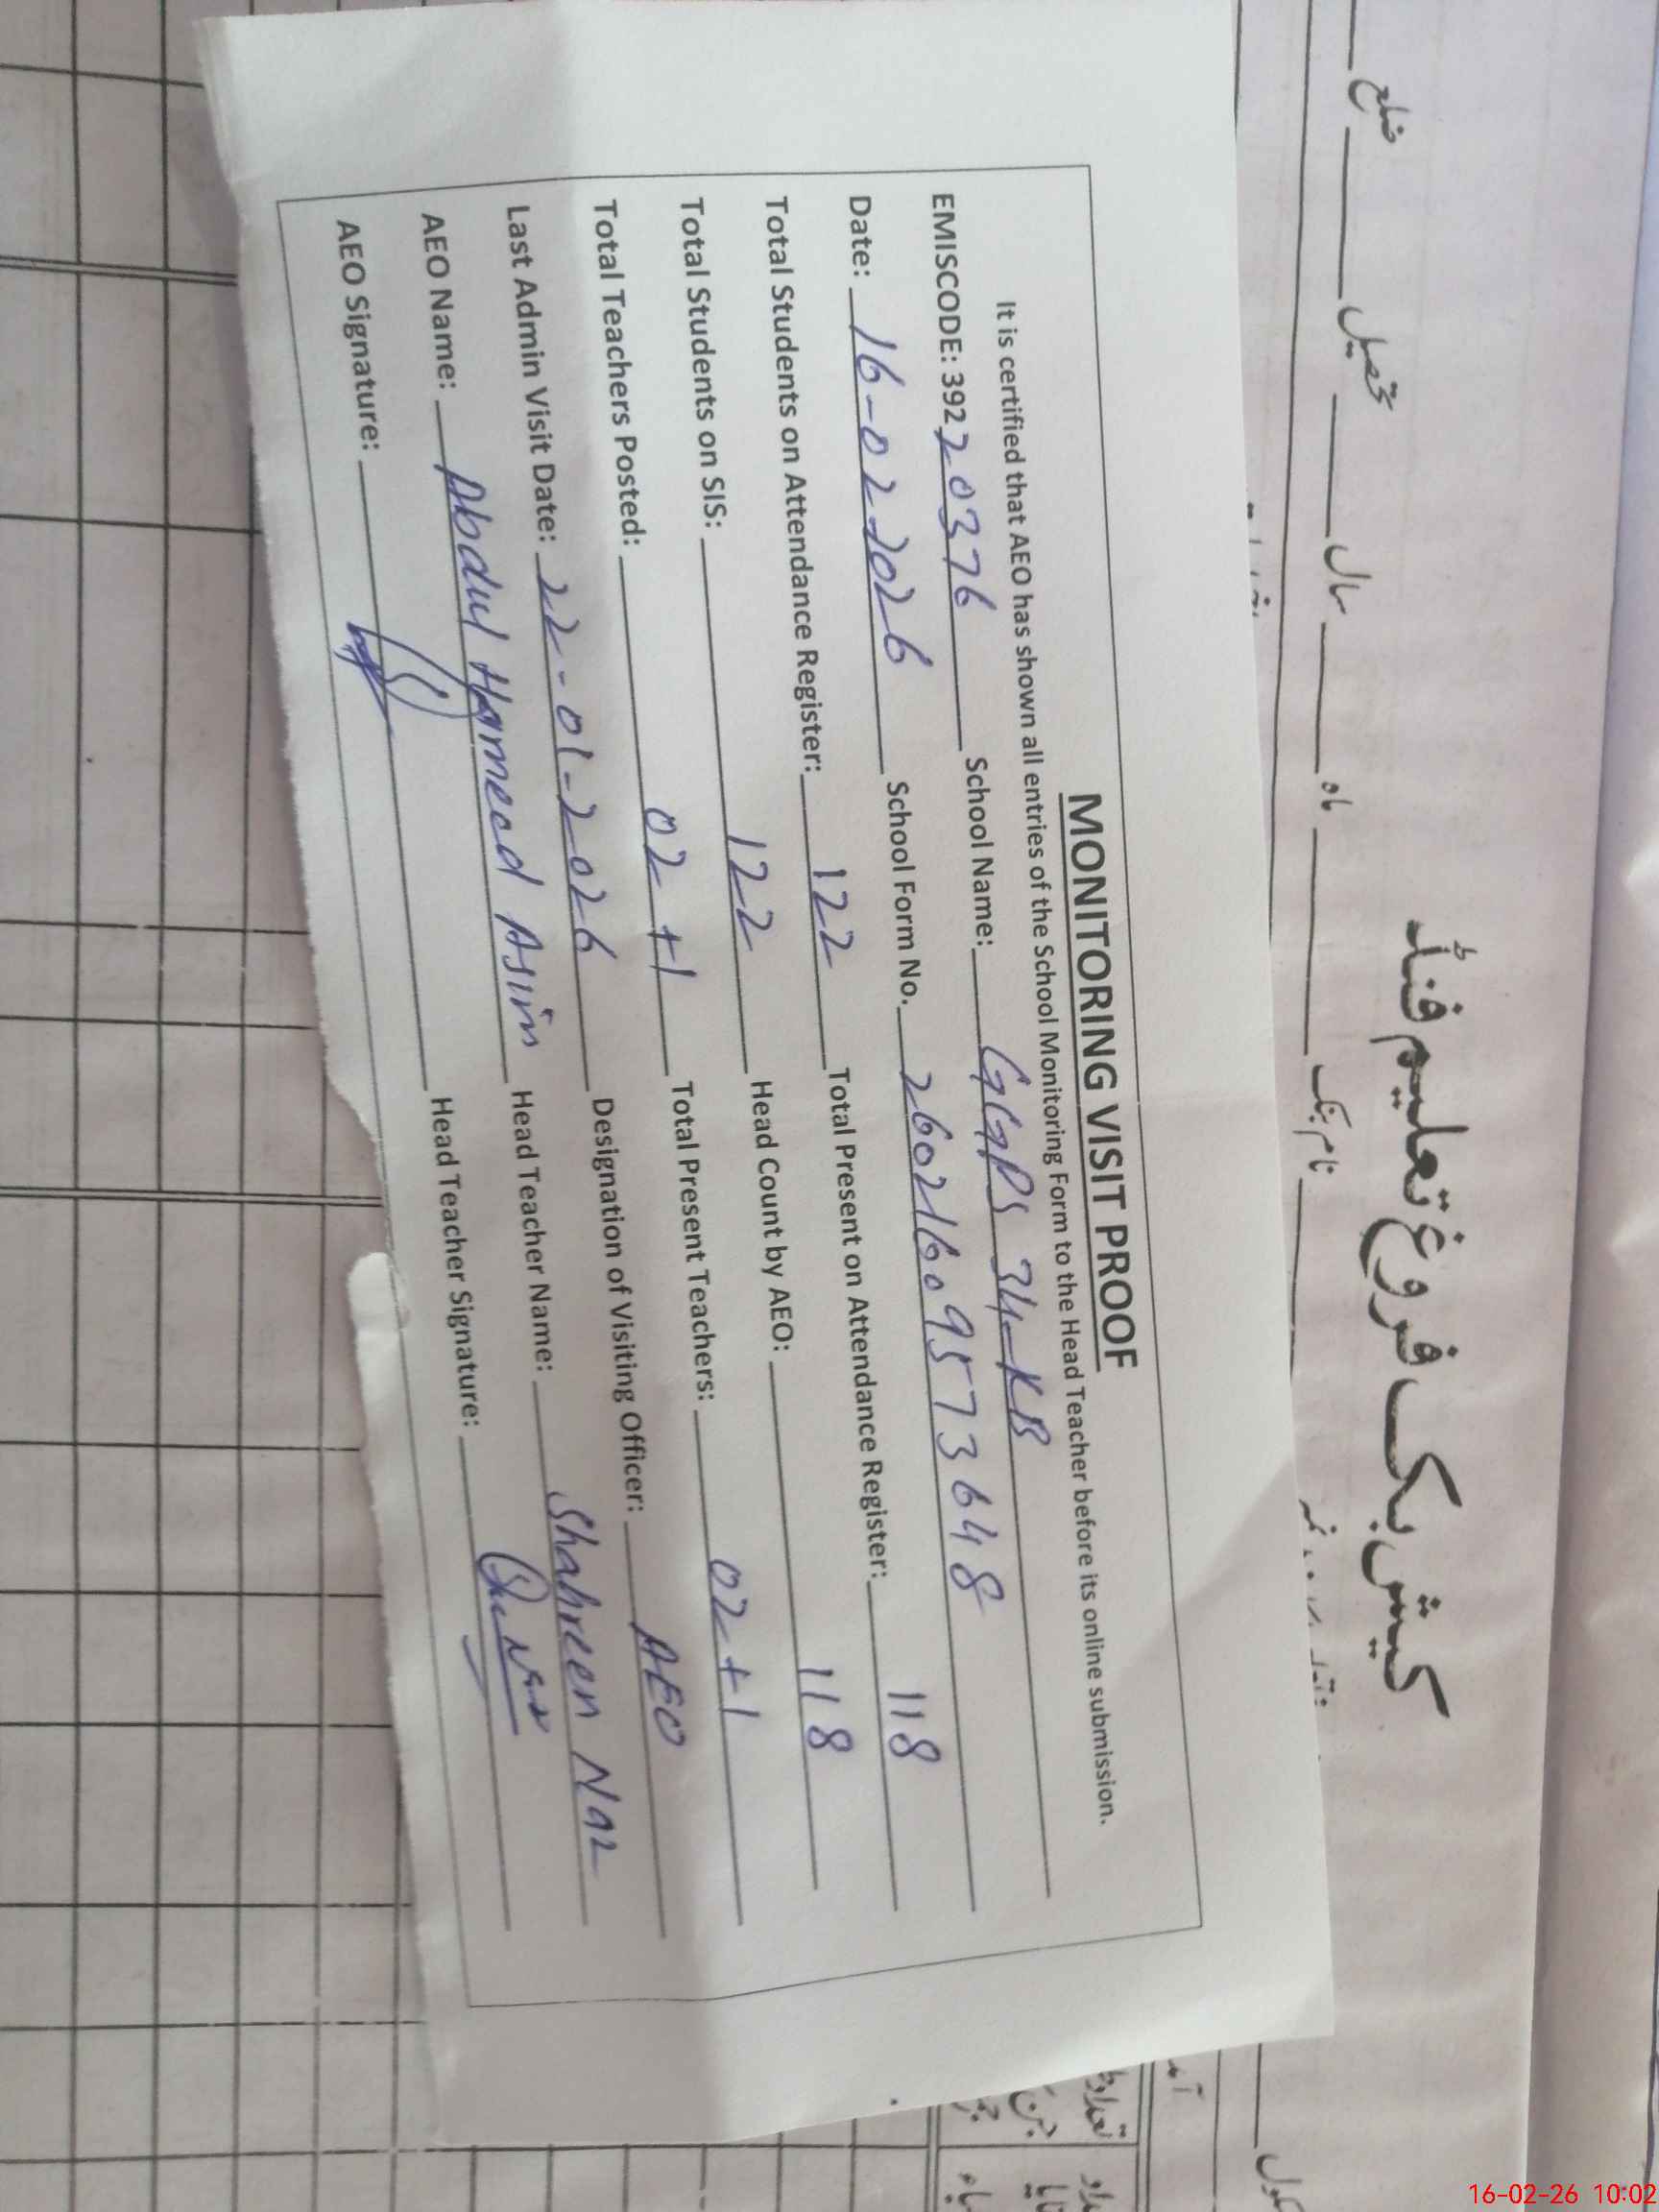 کیش بک فروغ تعلیم فنڈ
ضلع تحصیل سال ماہ نام بنک
MONITORING VISIT PROOF
It is certified that AEO has shown all entries of the School Monitoring Form to the Head Teacher before its online submission.
EMISCODE: 39220376 School Name: GGPS 34-KB
Date: 16-02-2026 School Form No. 260216095573648
Total Students on Attendance Register: 122 Total Present on Attendance Register: 118
Total Students on SIS: 122 Head Count by AEO: 118
Total Teachers Posted: 02+1 Total Present Teachers: 02+1
Last Admin Visit Date: 22-01-2026 Designation of Visiting Officer: AEO
AEO Name: Abdul Hameed Asim Head Teacher Name: Shahreen Naz
AEO Signature: Head Teacher Signature:
16-02-26 10:02